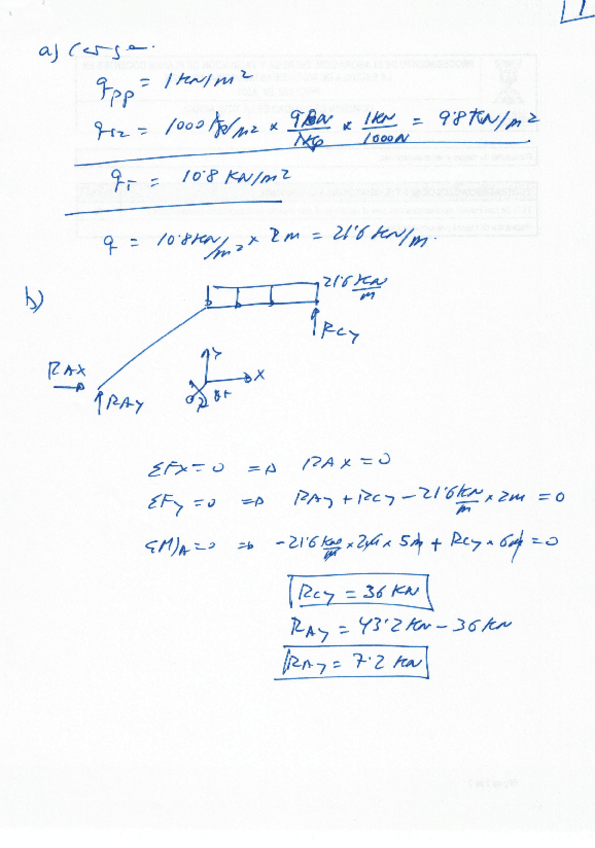 1
a) Carga.
qpp = 1 KN/m2
= 1000 kg/m2 × 9'8N/1kg × 1KN/1000N = 9'8 KN/m2
qT = 10'8 KN/m2
q = 10'8KN/m2 × 2m = 21'6 KN/m.
b)
21'6 KN/m
RCy
RAX
RAy
y
x
ΣFx=0 => RAx=0
ΣFy=0 => RAy + RCy - 21'6 KN/m × 2m = 0
ΣM)A=0 => -21'6 KN/m × 2m × 5m + RCy × 6m = 0
RCy = 36 KN
RAy = 43'2 KN - 36 KN
RAy = 7'2 KN